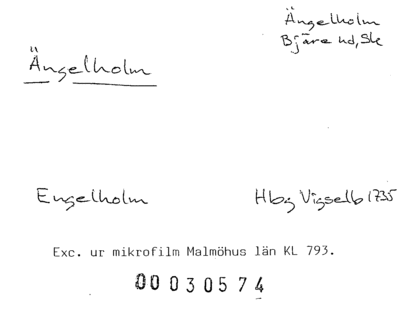 Ängelholm
Bjäre hd, Sk
Ängelholm
Engelholm
Hbg Vigselb 1735
Exc. ur mikrofilm Malmöhus län KL 793.
00030574